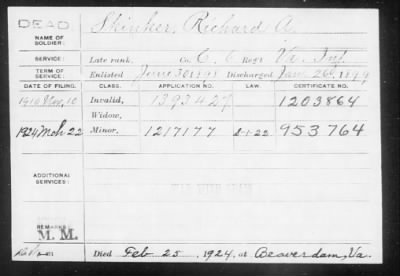 DEAD
NAME OF SOLDIER: Skinker, Richard A.
SERVICE: Late rank, Co. C, 6 Regt Va. Inf.
TERM OF SERVICE: Enlisted June 30 1898 Discharged Jan. 26, 1899
DATE OF FILING. CLASS. APPLICATION NO. LAW. CERTIFICATE NO.
1910 Nov, 10 Invalid, 1393427 1203864
Widow,
1924 Mch 22 Minor, 1217177 953764
ADDITIONAL SERVICES:
WAR WITH SPAIN
REMARKS:
M. M.
Died Feb. 25, 1924, at Beaverdam, Va.